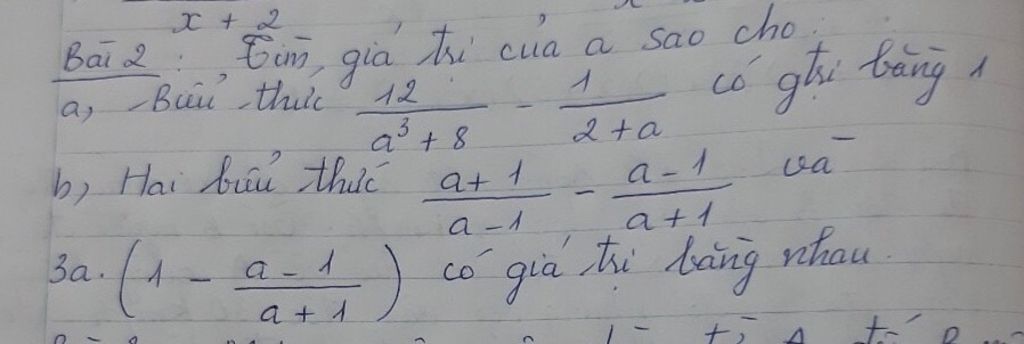 x + 2
Bài 2 : Tìm giá trị của a sao cho:
a, Biểu thức 12/(a³ + 8) - 1/(2 + a) có gtrị bằng 1
b, Hai biểu thức (a + 1)/(a - 1) - (a - 1)/(a + 1) và
3a. (1 - (a - 1)/(a + 1)) có giá trị bằng nhau.